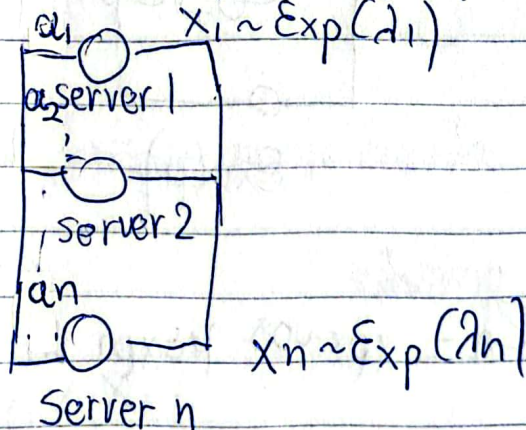 a1 X1 ~ Exp(λ1)
a2 server 1
server 2
an
Xn ~ Exp(λn)
Server n